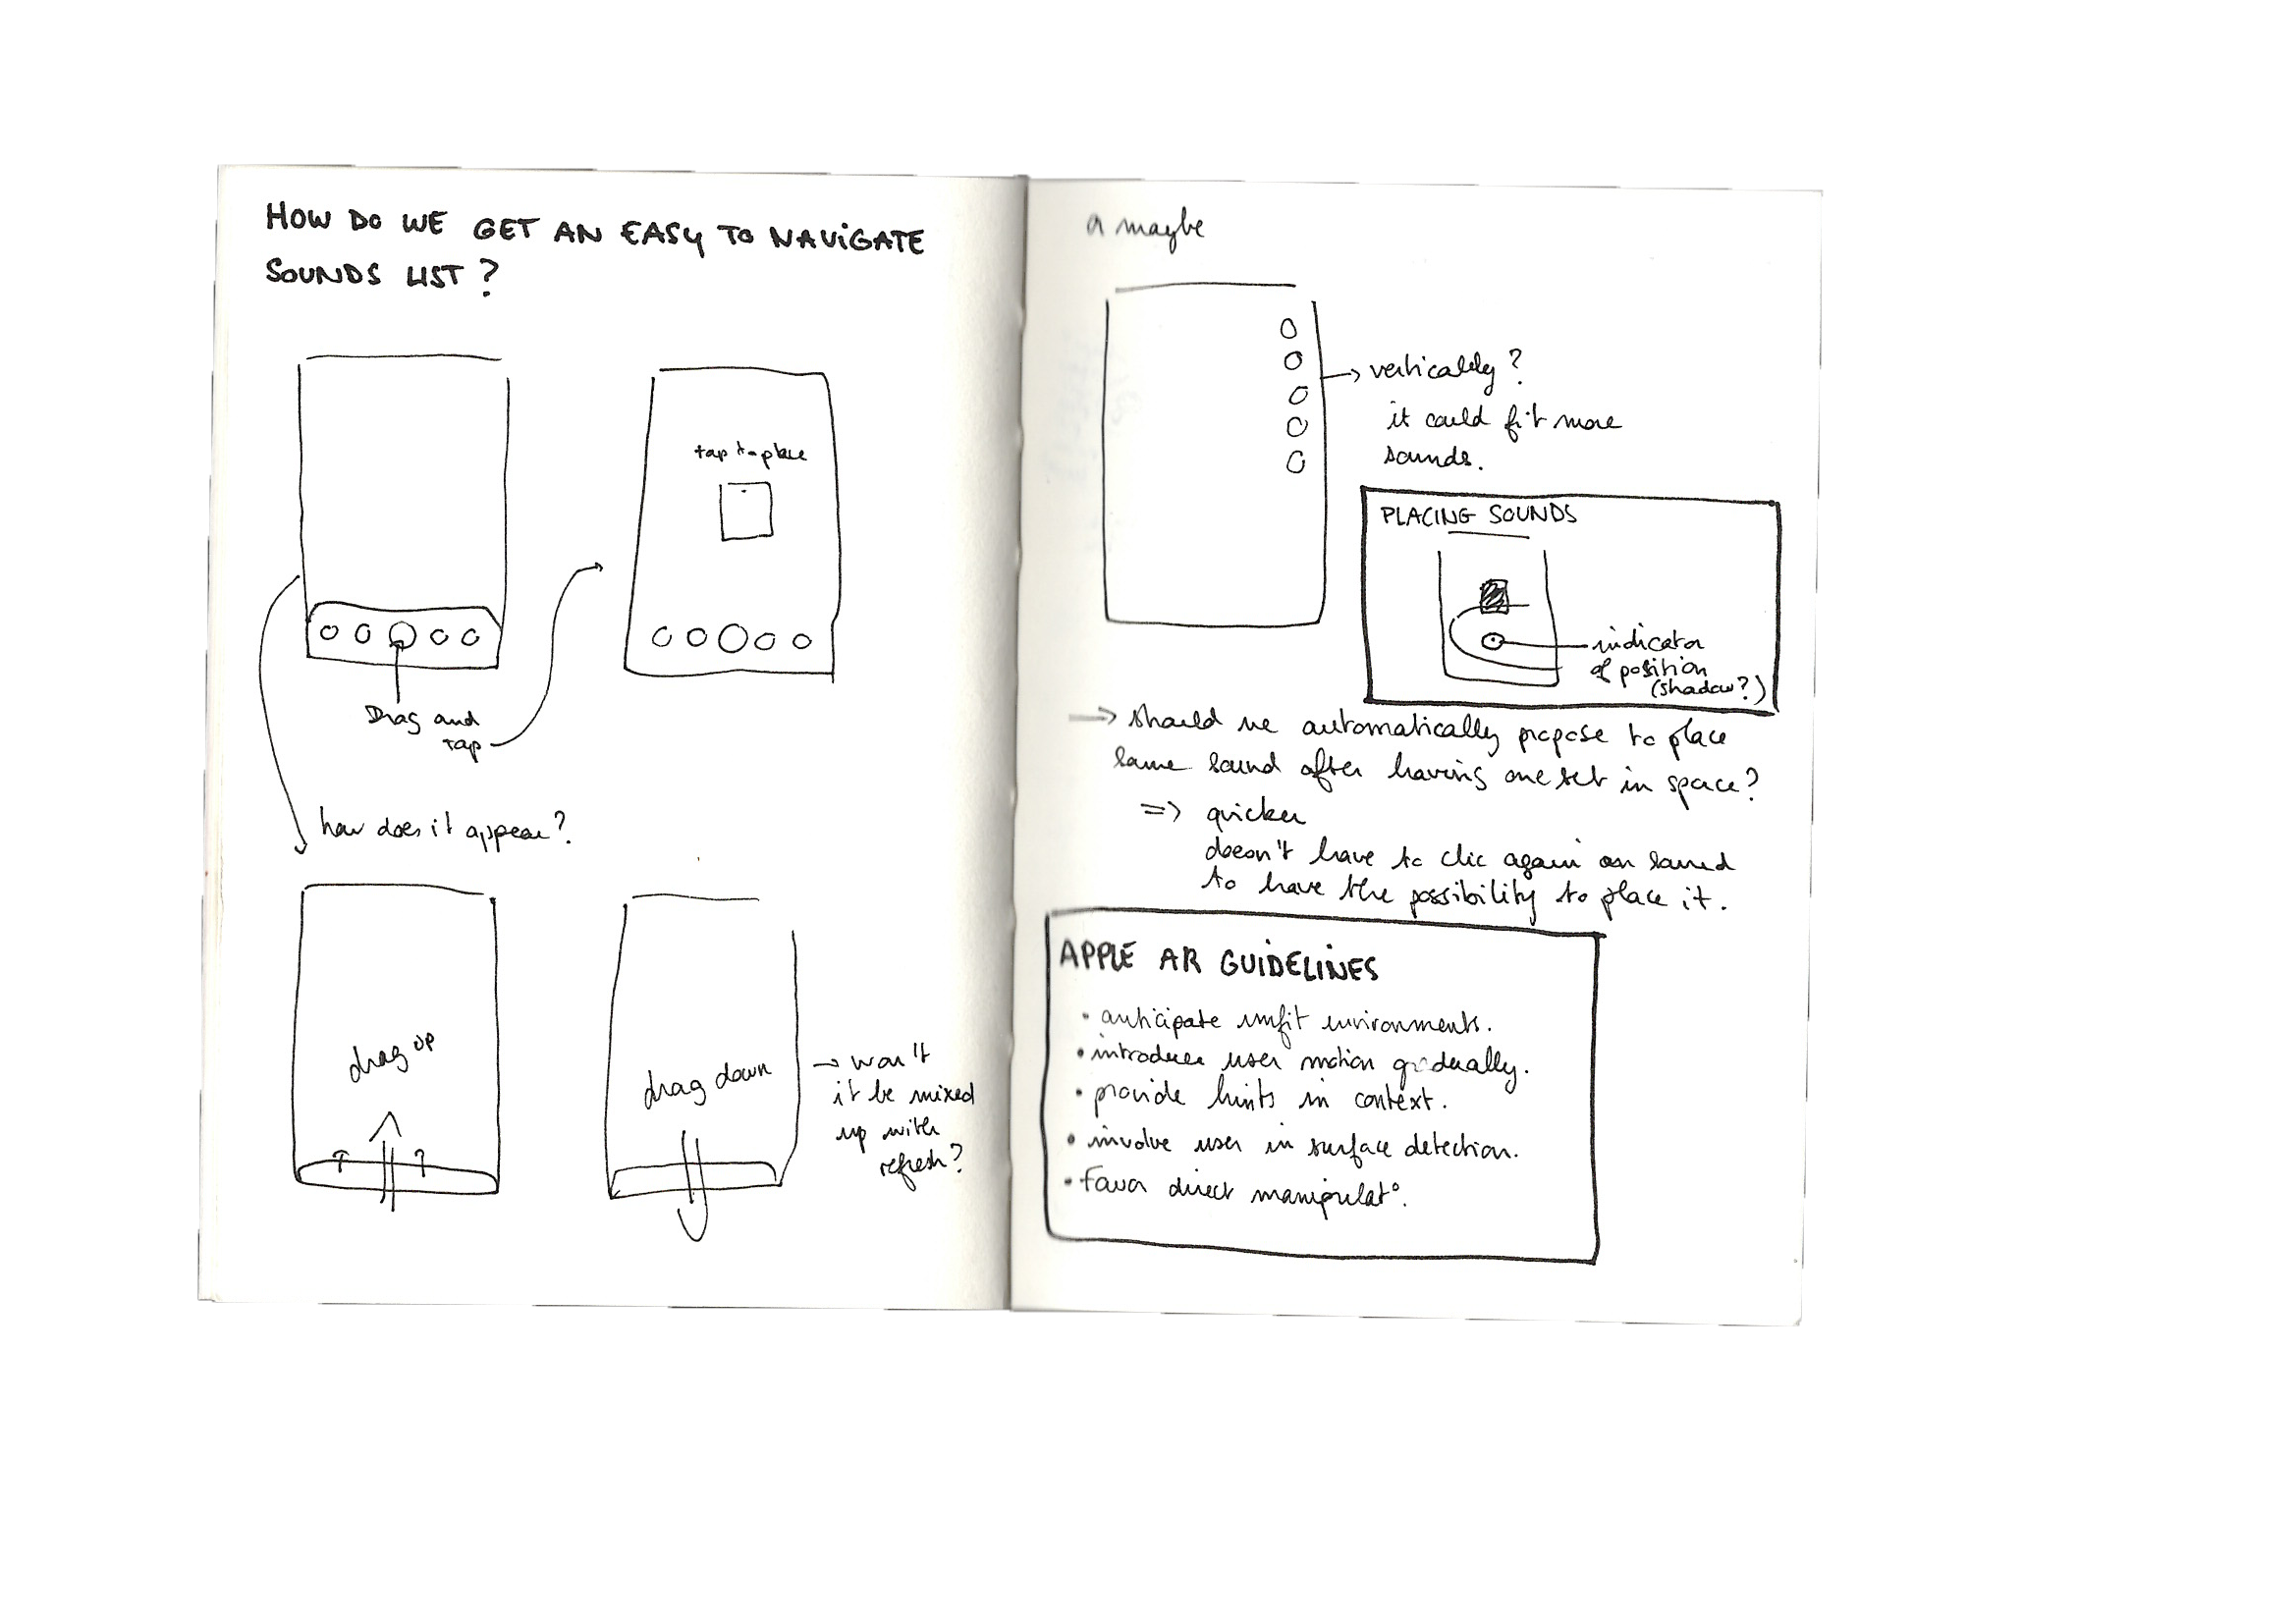 HOW DO WE GET AN EASY TO NAVIGATE
SOUNDS LIST ?
tap to place
Drag and
tap
how does it appear?
drag up
drag down
→ won't
it be mixed
up with
refresh?
a maybe
→ vertically ?
it could fit more
sounds.
PLACING SOUNDS
indicator
of position
(shadow?)
→ should we automatically propose to place
same sound after having one set in space?
=> quicker
doesn't have to clic again on sound
to have the possibility to place it.
APPLE AR GUIDELINES
• anticipate unfit environments.
• introduce user motion gradually.
• provide hints in context.
• involve user in surface detection.
• Favor direct manipulat°.